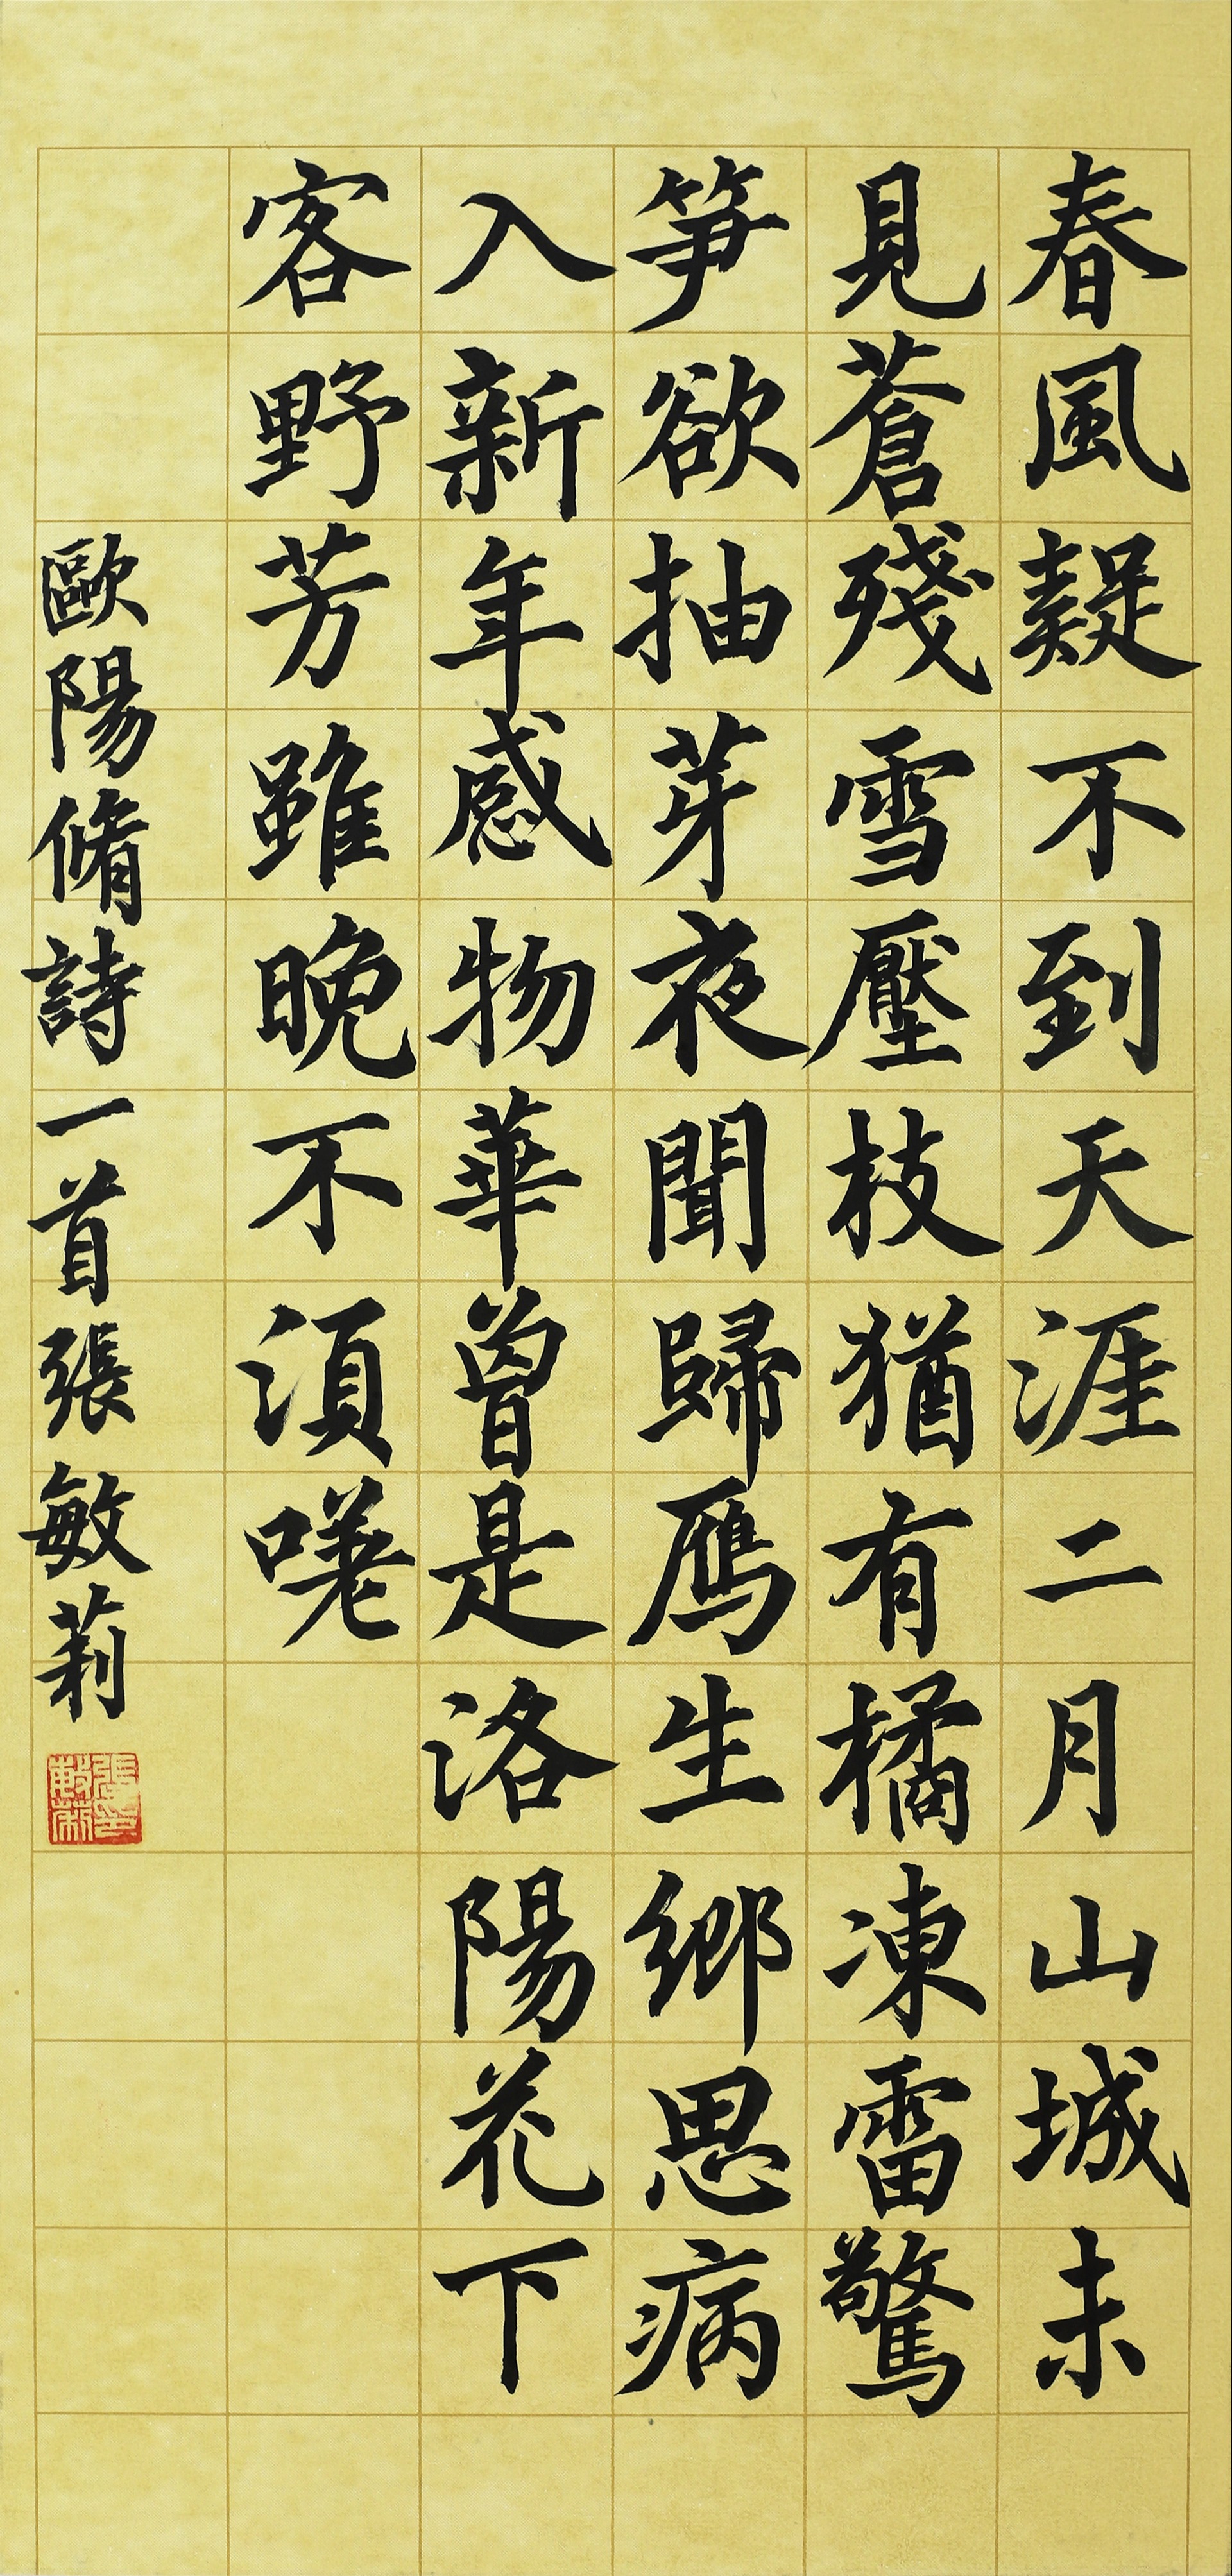 春風疑不到天涯二月山城未
見蒼殘雪壓枝猶有橘凍雷驚
笋欲抽芽夜聞歸鴈生鄉思病
入新年感物華曾是洛陽花下
客野芳雖晚不湏嗟
歐陽脩詩一首張敏莉
張印敏莉